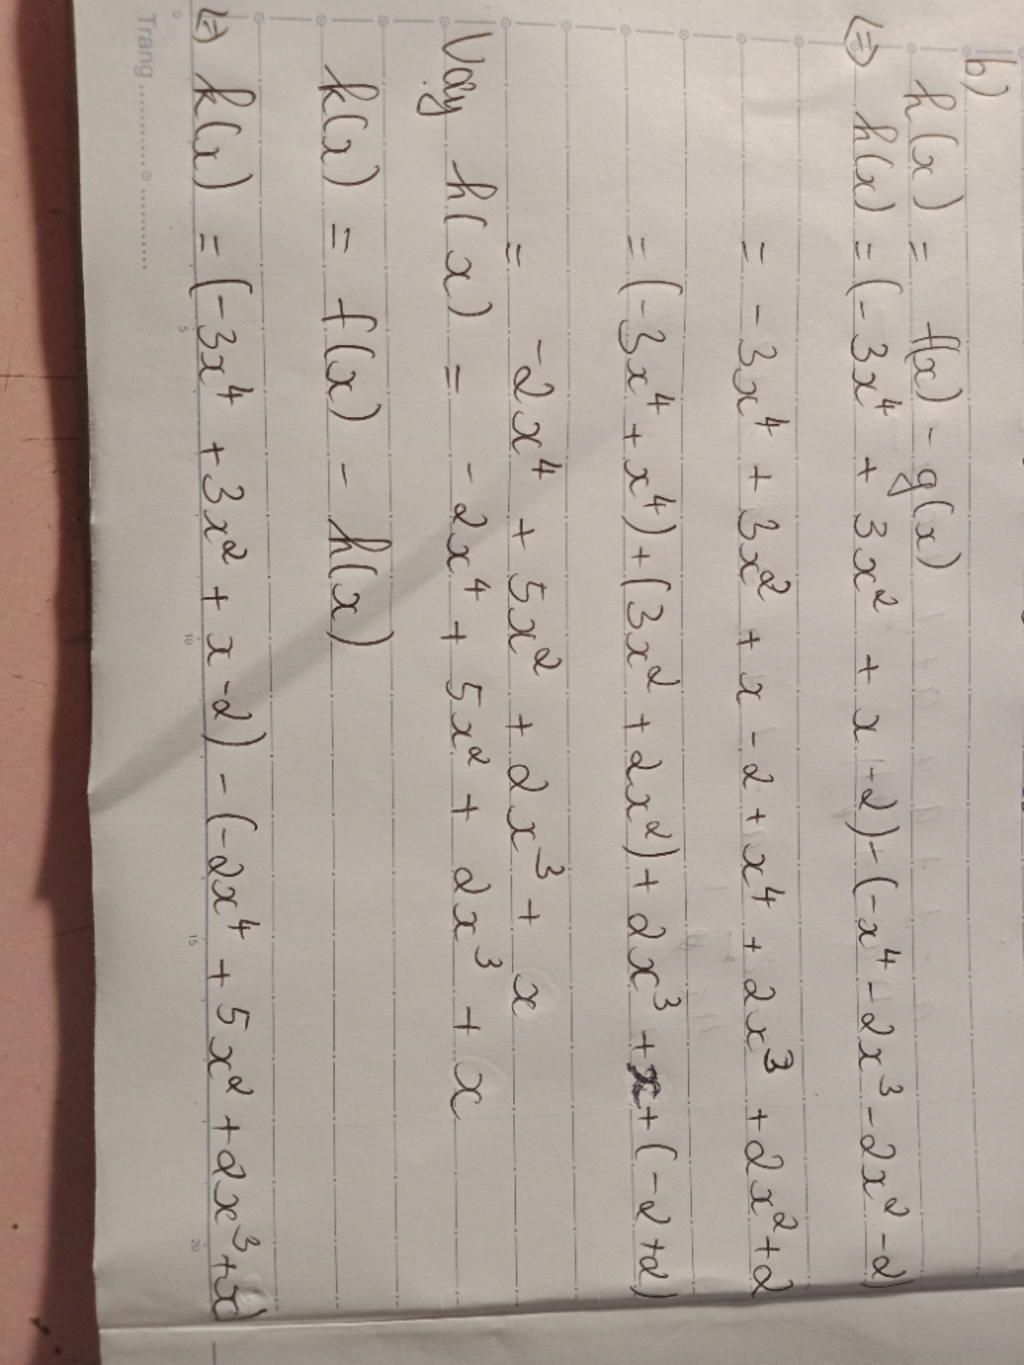 b)
h(x) = f(x) - g(x)
(=) h(x) = (-3x⁴ + 3x² + x -2) - (-x⁴ - 2x³ - 2x² - 2)
= -3x⁴ + 3x² + x - 2 + x⁴ + 2x³ + 2x² + 2
= (-3x⁴ + x⁴) + (3x² + 2x²) + 2x³ + x + (-2 + 2)
= -2x⁴ + 5x² + 2x³ + x
Vậy h(x) = -2x⁴ + 5x² + 2x³ + x
k(x) = f(x) - h(x)
(=) k(x) = (-3x⁴ + 3x² + x -2) - (-2x⁴ + 5x² + 2x³ + x)
Trang
5 10 15 20